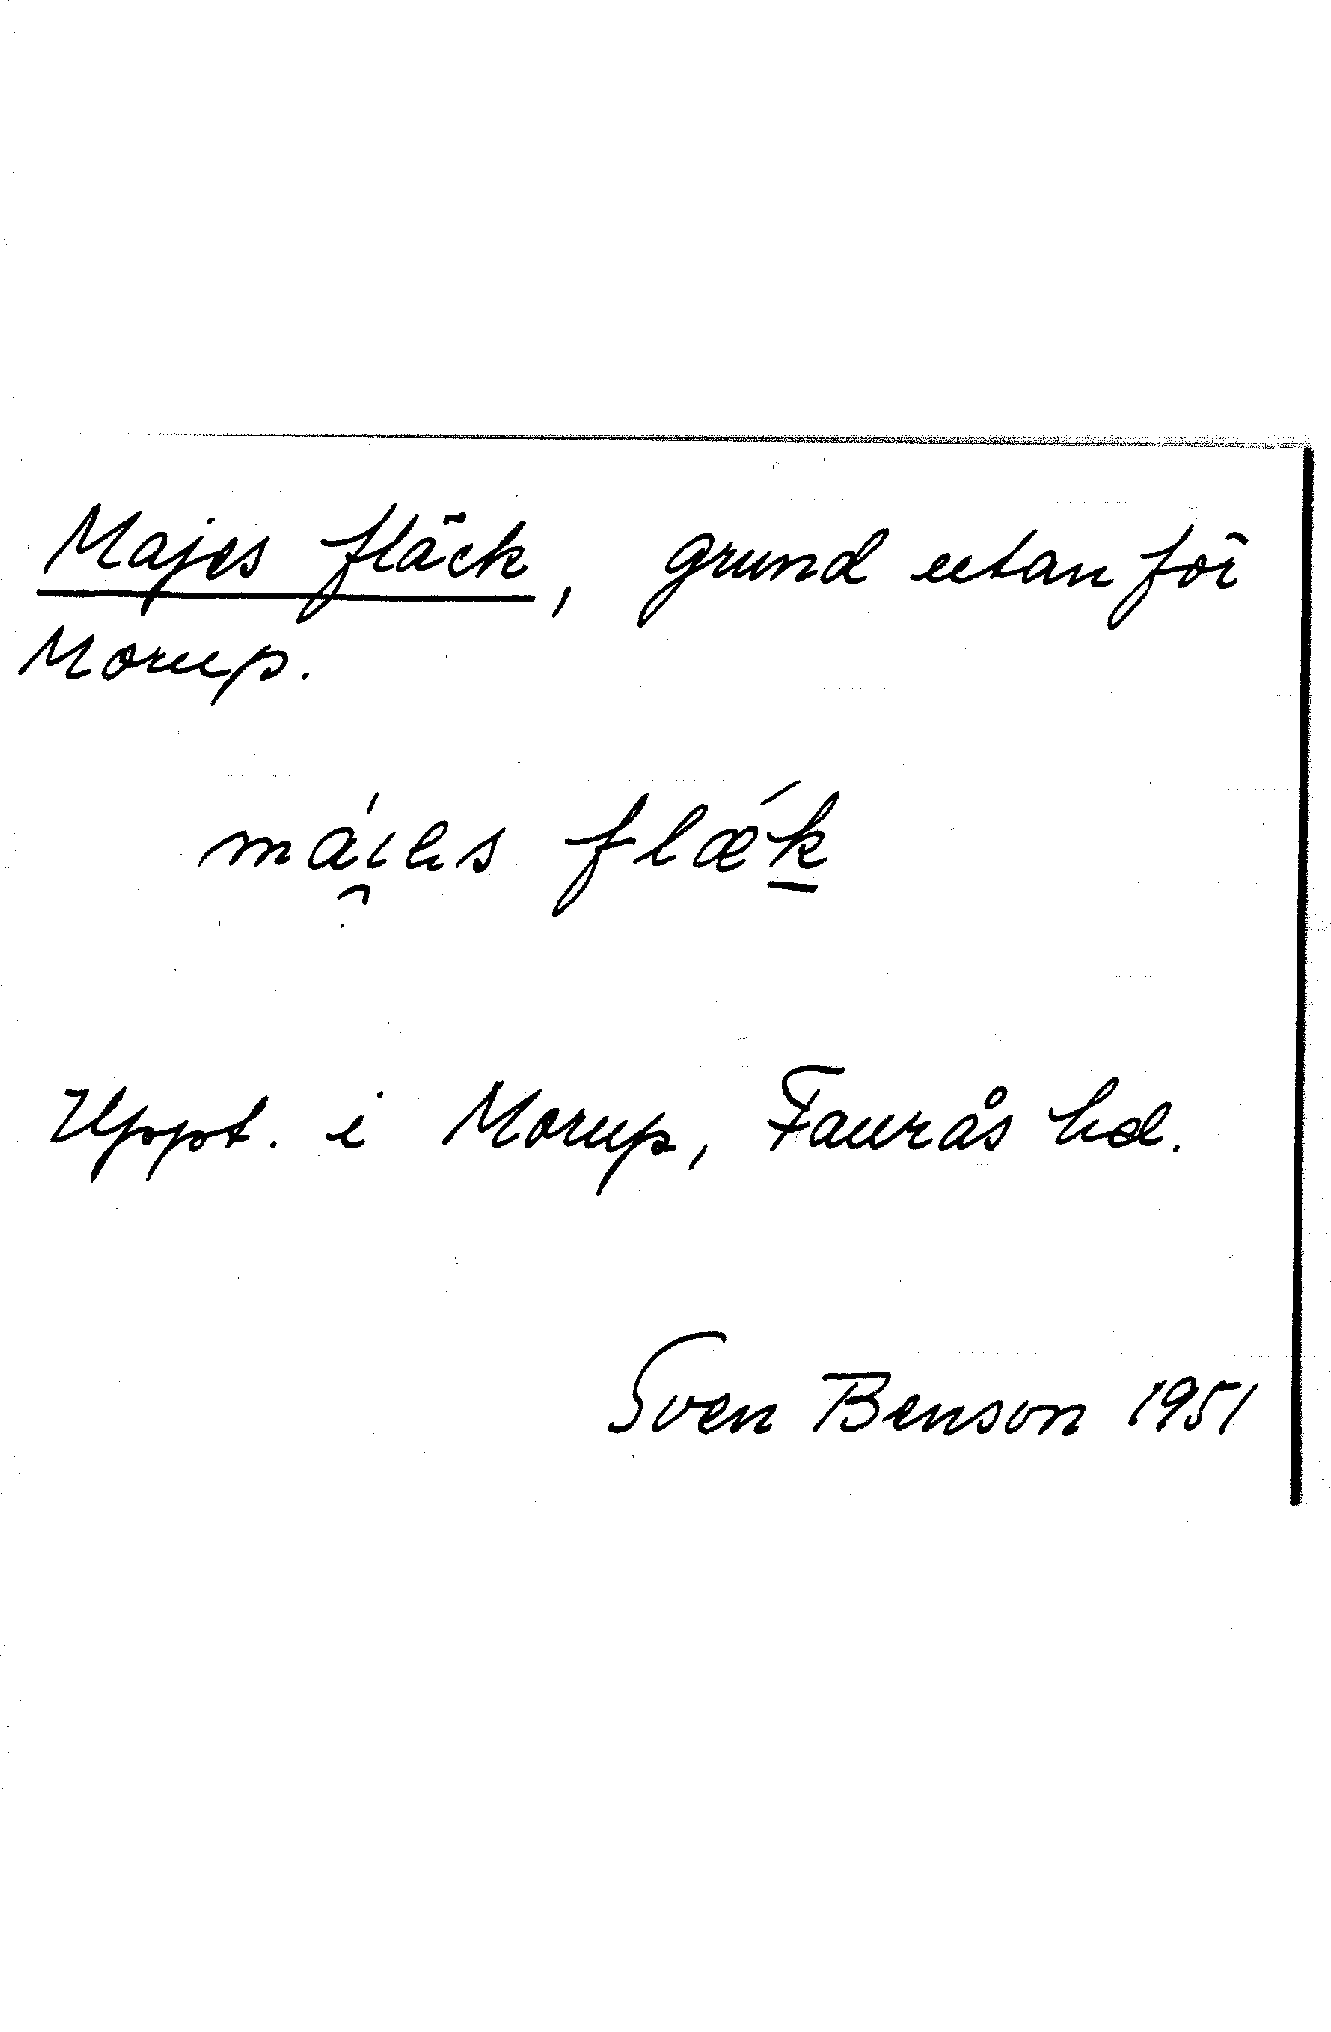 Majes fläck, grund utanför
Morup.
flǽk
Uppt. i Morup, Faurås hd.
Sven Benson 1951